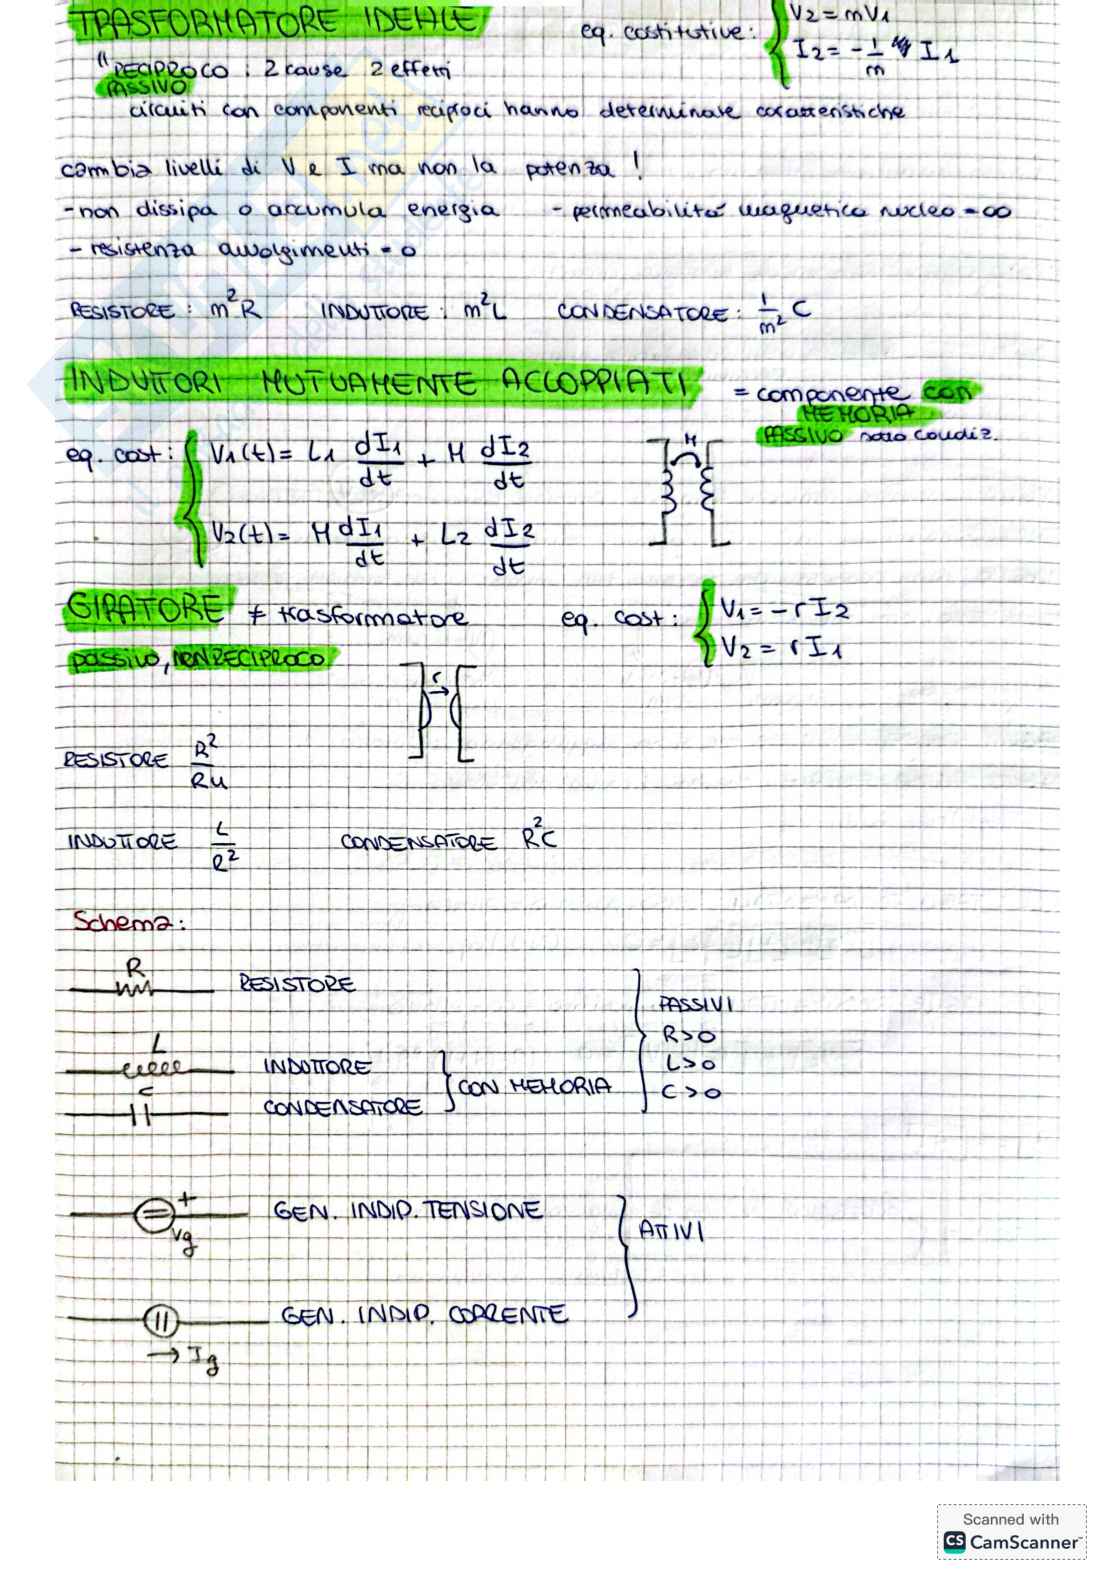 TRASFORMATORE IDEALE
eq. costitutive: V2 = mV1
I2 = - 1/m I1
"RECIPROCO: 2 cause 2 effetti
PASSIVO
circuiti con componenti reciproci hanno determinate caratteristiche
cambia livelli di V e I ma non la potenza!
- non dissipa o accumula energia - permeabilità magnetica nucleo = ∞
- resistenza avvolgimenti = 0
RESISTORE: m²R INDUTTORE: m²L CONDENSATORE: 1/m² C
INDUTTORI MUTUAMENTE ACCOPPIATI = componente con
MEMORIA
PASSIVO sotto condiz.
eq. cost: V1(t) = L1 dI1/dt + M dI2/dt
M
V2(t) = M dI1/dt + L2 dI2/dt
GIRATORE ≠ trasformatore eq. cost: V1 = -rI2
V2 = rI1
passivo, NON RECIPROCO
r
RESISTORE R²/Ru
INDUTTORE L/R² CONDENSATORE R²C
Schema:
R RESISTORE
PASSIVI
R>0
L>0
C>0
L INDUTTORE
CON MEMORIA
C CONDENSATORE
+ Vg GEN. INDIP. TENSIONE
ATTIVI
GEN. INDIP. CORRENTE
→ Ig
Scanned with
CS CamScanner